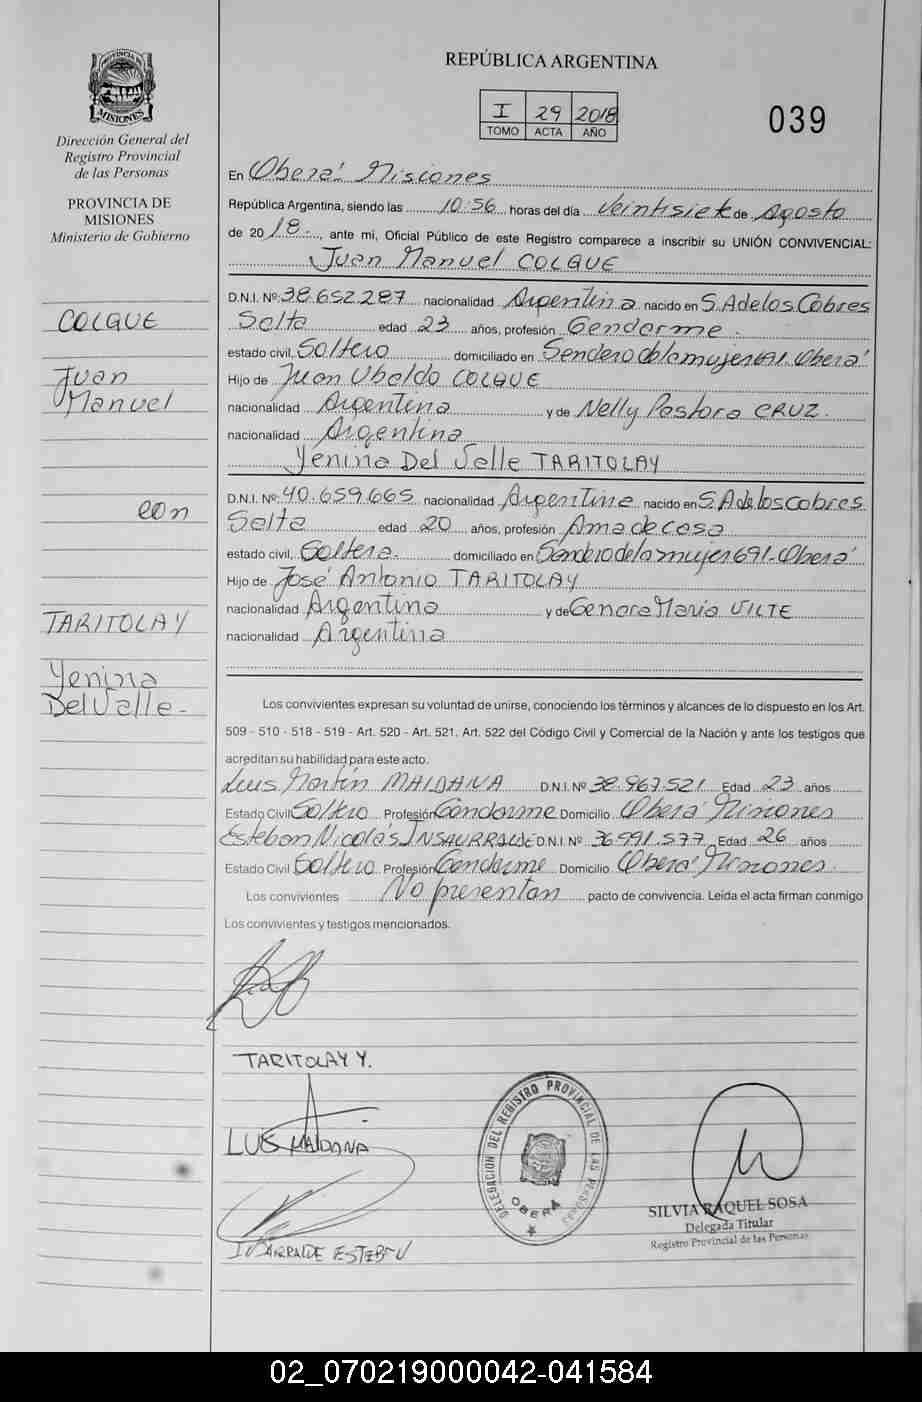 PROVINCIA DE
MISIONES
Dirección General del
Registro Provincial
de las Personas
PROVINCIA DE
MISIONES
Ministerio de Gobierno
COLQUE
Juan
Manuel
con
TARITOLAY
Yenina
Del Valle -
REPÚBLICA ARGENTINA
I 29 2018
TOMO ACTA AÑO
039
En Oberá Misiones
República Argentina, siendo las 10:56 horas del día Veintisiete de Agosto
de 2018.-, ante mi, Oficial Público de este Registro comparece a inscribir su UNIÓN CONVIVENCIAL:
Juan Manuel COLQUE
D.N.I. Nº: 38.652.287 nacionalidad Argentina nacido en S. A de los Cobres
Salta edad 23 años, profesión Gendarme.
estado civil, Soltero domiciliado en Sendero de la mujer 691. Oberá
Hijo de Juan Ubaldo COLQUE
nacionalidad Argentina y de Nelly Pastora CRUZ.
nacionalidad Argentina
Yenina Del Valle TARITOLAY
D.N.I. Nº: 40.659.665 nacionalidad Argentina nacido en S. A de los cobres
Salta edad 20 años, profesión Ama de casa
estado civil, Soltera. domiciliado en Sendero de la mujer 691-Oberá
Hijo de José Antonio TARITOLAY
nacionalidad Argentina y de Genara María VILTE
nacionalidad Argentina
Los convivientes expresan su voluntad de unirse, conociendo los términos y alcances de lo dispuesto en los Art.
509 - 510 - 518 - 519 - Art. 520 - Art. 521, Art. 522 del Código Civil y Comercial de la Nación y ante los testigos que
acreditan su habilidad para este acto.
Luis Martín MAIDANA D.N.I. Nº 38.967.521 Edad 23 años
Estado Civil Soltero Profesión Gendarme Domicilio Oberá Misiones
Esteban Nicolás INSAURRALDE D.N.I. Nº 36991.577 Edad 26 años
Estado Civil Soltero Profesión Gendarme Domicilio Oberá Misiones.
Los convivientes No presentan pacto de convivencia. Leída el acta firman conmigo
Los convivientes y testigos mencionados.
TARITOLAY Y.
LUIS MAIDANA
ESTEBAN
DELEGACION DEL REGISTRO PROVINCIAL DE LAS PERSONAS
OBERÁ
SILVIA RAQUEL SOSA
Delegada Titular
Registro Provincial de las Personas
02_070219000042-041584